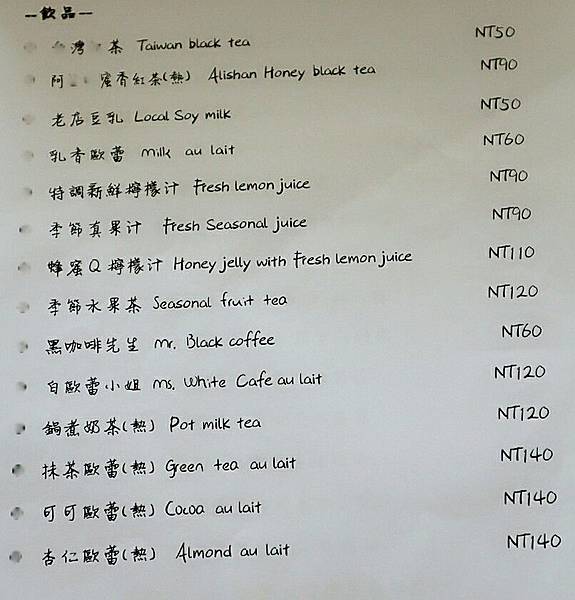 --飲品--
灣 茶 Taiwan black tea NT50
阿 蜜香紅茶(熱) Alishan Honey black tea NT90
老店豆乳 Local Soy milk NT50
乳香歐蕾 milk au lait NT60
特調新鮮檸檬汁 Fresh lemon juice NT90
季節真果汁 Fresh Seasonal juice NT90
蜂蜜Q檸檬汁 Honey jelly with Fresh lemon juice NT110
季節水果茶 Seasonal fruit tea NT120
黑咖啡先生 mr. Black coffee NT60
白歐蕾小姐 ms. White Cafe au lait NT120
鍋煮奶茶(熱) Pot milk tea NT120
抹茶歐蕾(熱) Green tea au lait NT140
可可歐蕾(熱) Cocoa au lait NT140
杏仁歐蕾(熱) Almond au lait NT140